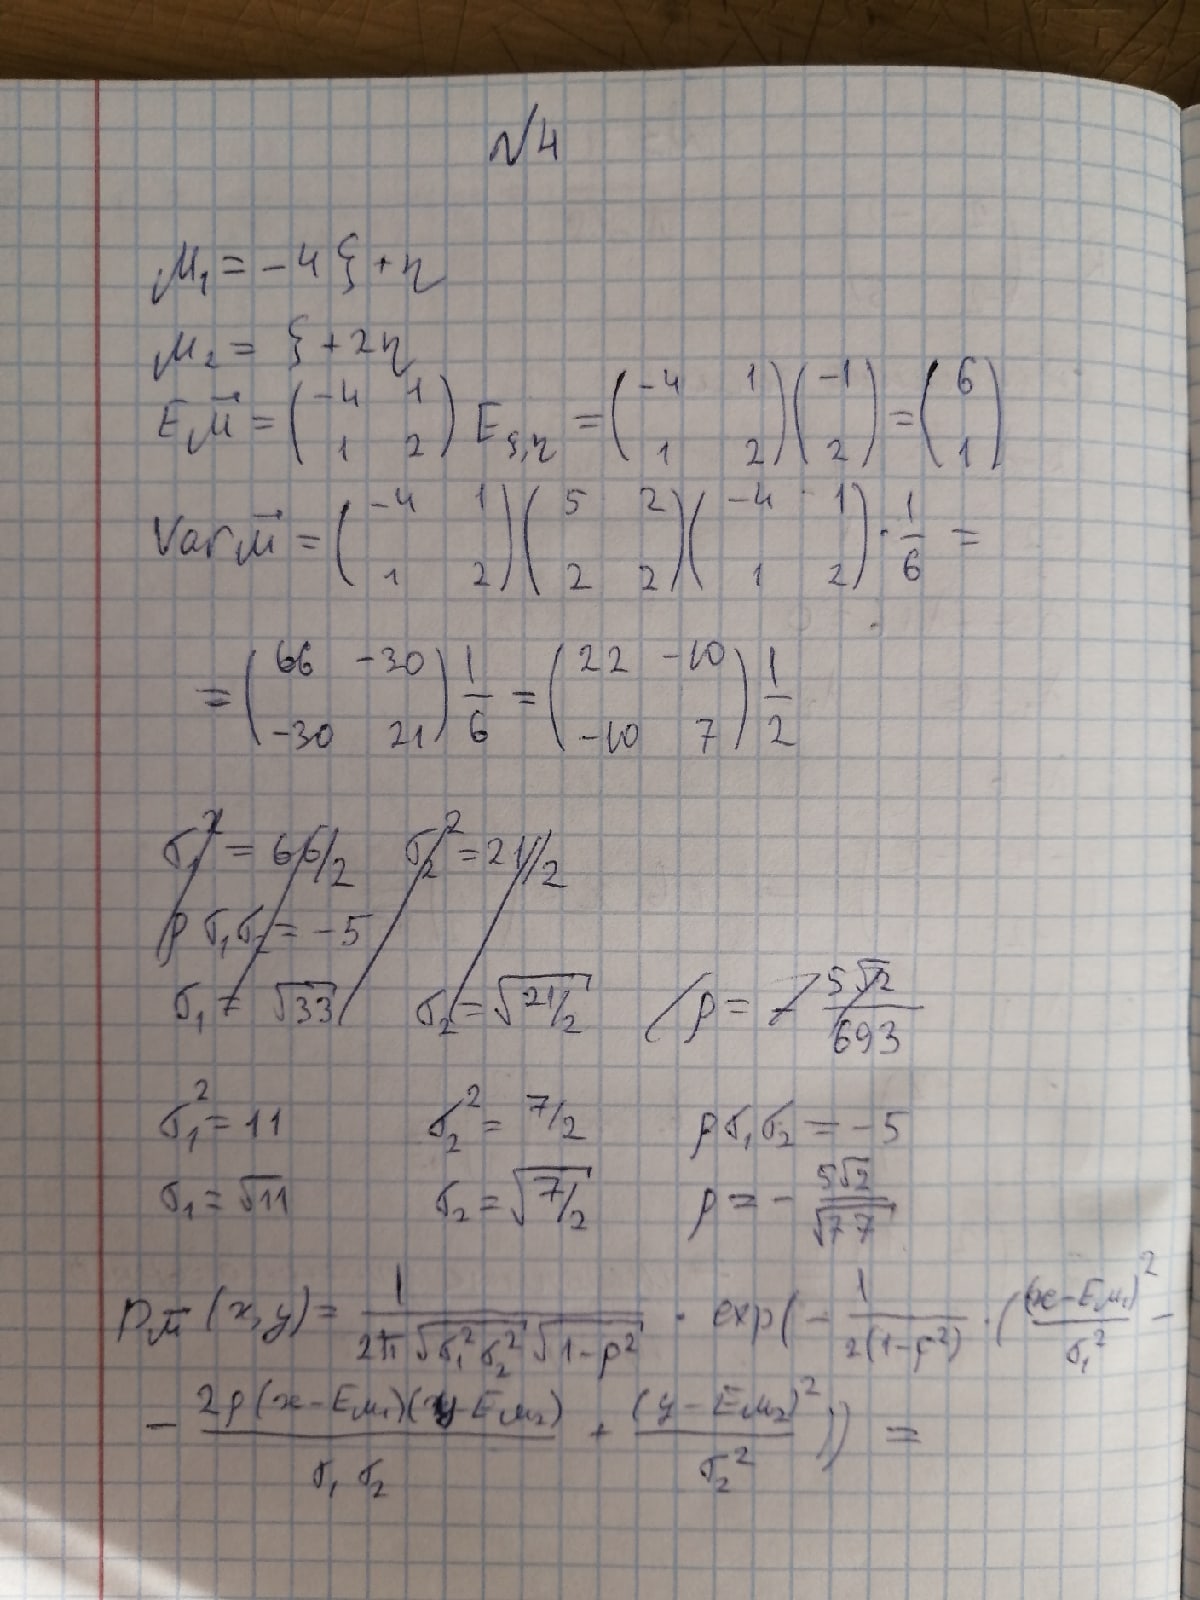 №4
μ₁ = -4ξ + η
μ₂ = ξ + 2η
Eμ⃗ = (-4 1; 1 2) E ξ,η = (-4 1; 1 2)(-1; 2) = (6; 1)
Var μ⃗ = (-4 1; 1 2)(5 2; 2 2)(-4 1; 1 2) · 1/6 =
= (66 -30; -30 21) 1/6 = (22 -10; -10 7) 1/2
σ₁² = 66/2 σ₂² = 21/2
ρσ₁σ₂ = -5
σ₁ = √33 σ₂ = √(21/2) ρ = - 5√2/693
σ₁² = 11 σ₂² = 7/2 ρσ₁σ₂ = -5
σ₁ = √11 σ₂ = √(7/2) ρ = - 5√2/√77
P_μ⃗ (x,y) = 1/(2π√(σ₁²σ₂²)√(1-ρ²)) · exp(- 1/(2(1-ρ²)) · ((x-Eμ₁)²/σ₁² -
- 2ρ(x-Eμ₁)(y-Eμ₂)/(σ₁ σ₂) + (y-Eμ₂)²/σ₂²)) =